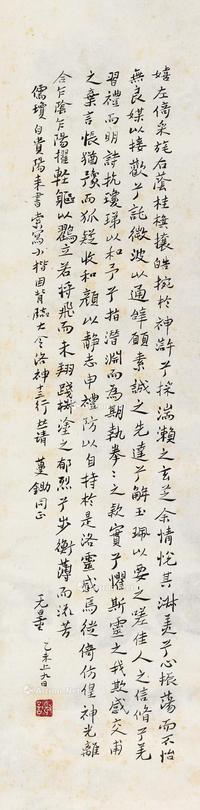 嬉左倚采旄右蔭桂旗攘皓捥於神滸兮採湍瀨之玄芝余情悅其淋美兮心振蕩而不怡
無良媒以接歡兮託微波以通辭願素誠之先達兮解玉珮以要之嗟佳人之信脩兮羌
習禮而明詩抗瓊珶以和予兮指潛淵而為期執拳〻之款實兮懼斯靈之我欺感交甫
之棄言悵猶豫而狐疑收和顏以靜志申禮防以自持於是洛靈感焉徙倚仿偟神光離
合乍陰乍陽擢輕軀以鶴立若將飛而未翔踐椒塗之郁烈兮步衡薄而流芳
儒瓊自貴陽來書索寫小楷因背臨大令洛神十三行
堇鋤同正
无量 乙未上九日